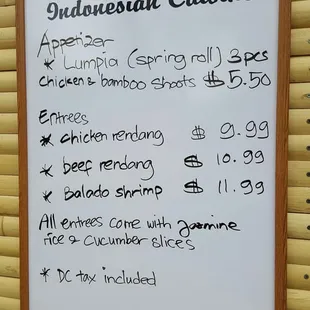 Indonesian
Appetizer
* Lumpia (spring roll) 3pcs
chicken & bamboo shoots $5.50
Entrees
* chicken rendang $ 9.99
* beef rendang $ 10.99
* Balado shrimp $ 11.99
All entrees come with Jasmine
rice & cucumber slices
* DC tax included